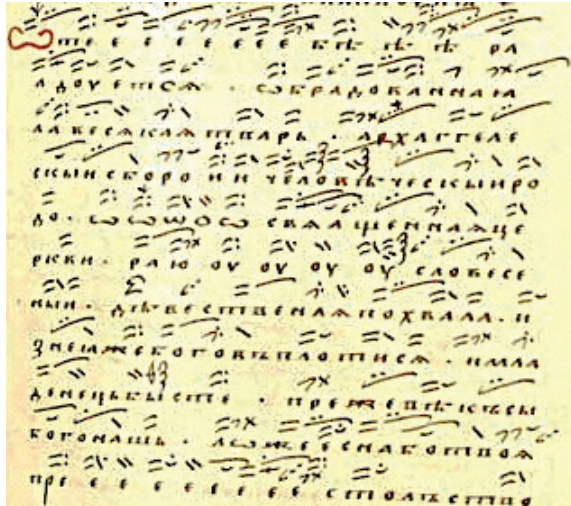 ѡ тееееееебѣѣѣ ра
адоуетсѧ · ѡбрадованнаꙗ
ла весѧклѧ тварь · архаггеле
скыи сборо и и человѣческыи ро
до · ѡѡѡѡѡ свѧащеннаꙗ це
ркви · раю оу оу оу оу словесе
ныи · дѣвественаꙗ похвала · и
з неꙗже богоꙗ въплотисѧ · и мла
денецьбысте · преже вѣкъ сы
богонашь · ложеснаботвоꙗ
преееееееестольство